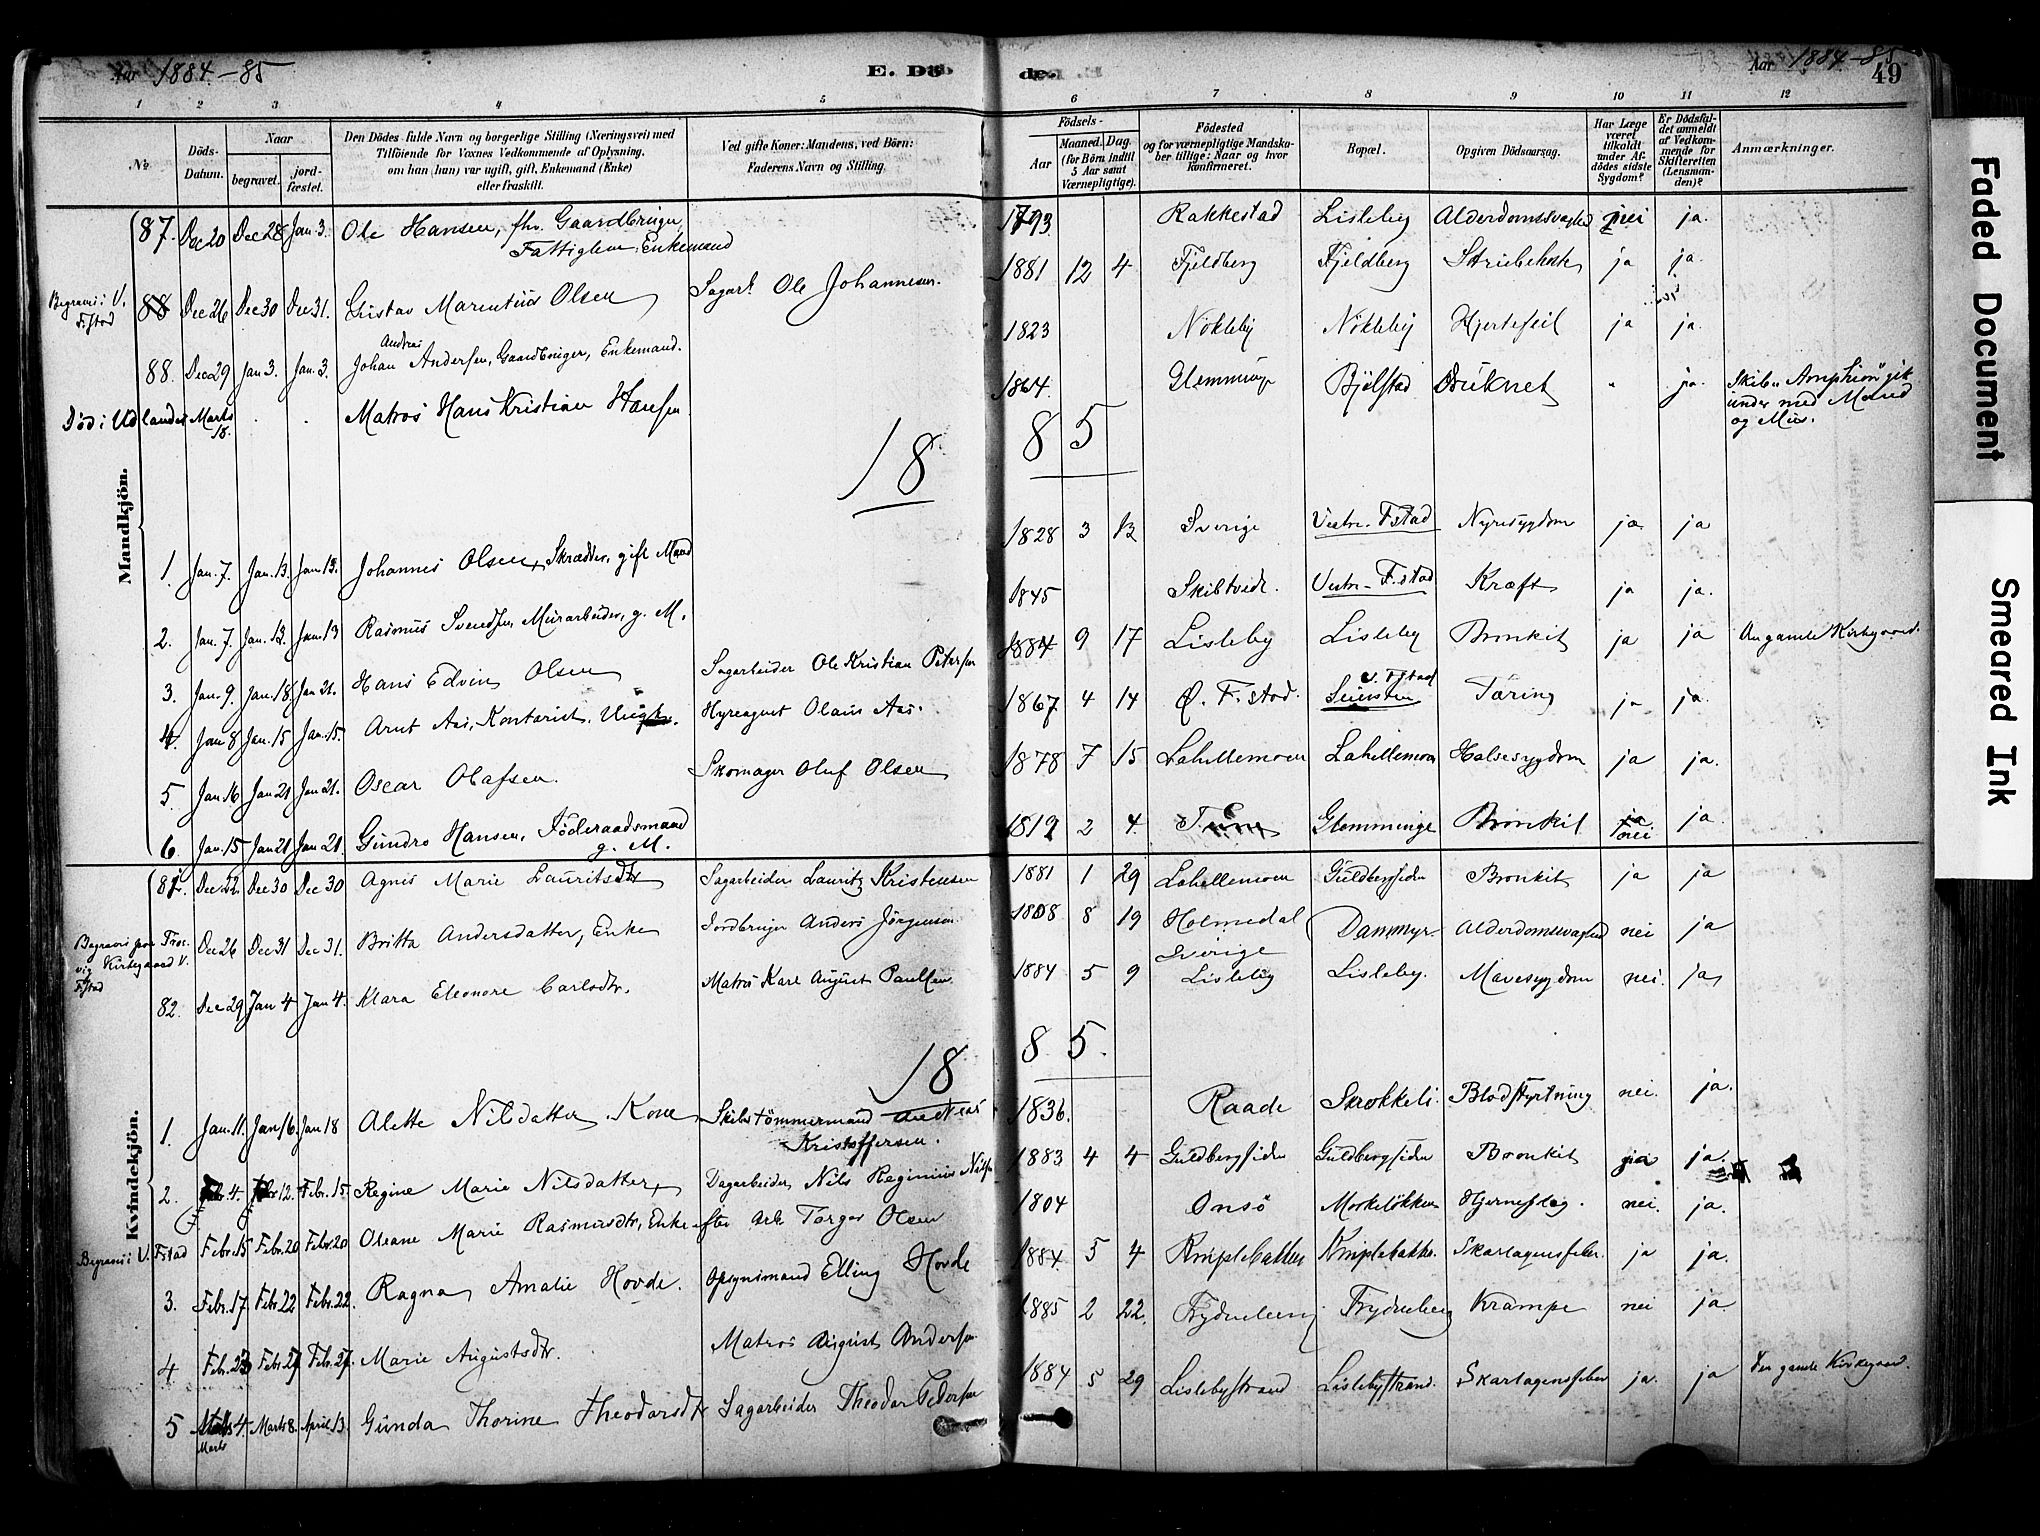 Aar 1884-85
E. Döde.
Aar 1884-85
49
1 2 3 4 5 6 7 8 9 10 11 12
No
Döds-Datum.
Naar
begravet.
jord-fæstet.
Den Dödes fulde Navn og borgerlige Stilling (Næringsvei) med
Tilföiende for Voxnes Vedkommende af Oplysning,
om han (hun) var ugift, gift, Enkemand (Enke)
eller fraskilt.
Ved gifte Koner: Mandens, ved Börn:
Faderens Navn og Stilling.
Födsels-
Aar
Maaned. Dag.
(for Börn indtil
5 Aar samt
Værnepligtige).
Födested
og for værnepligtige Mandska-
ber tillige: Naar og hvor
konfirmeret.
Bopæl.
Opgiven Dödsaarsag.
Har Læge
været
tilkaldt
under Af-
dödes sidste
Sygdom?
Er Dödsfal-
det anmeldt
af Vedkom-
mende for
Skifteretten
(Lensman-
den)?
Anmærkninger.
Mandkjön.
87. Dec 20 Dec 28 Jan. 3. Ole Hansen, fhv. Gaardbruger, 1793 Rakkestad Lisleby Alderdomssvaghed nei ja.
Fattiglem. Enkemand
Begravet i V. Fstad 88 Dec 26 Dec 30 Dec 31. Gustav Marentius Olsen Sagarb. Ole Johannesen. 1881 12 4 Fjeldberg Fjeldberg Strubehoste ja ja.
88. Dec 29 Jan 3. Jan. 3. Johan Andreas Andersen, Gaardbruger, Enkemand. 1823 Nökleby Nökleby Hjertefeil ja ja.
Död i Udlandet Marts 15. Matros Hans Kristian Hansen 1864. Glemminge Bjölstad Druknet " ja. Skib "Amphion" gik
under med Mand
og Mus.
18 85
1. Jan. 7. Jan. 13. Jan 13. Johannes Olsen, Skrædder, gift Mand 1828 3 12 Sverige Vestre Fstad Nyresygdom ja ja
2. Jan. 7. Jan. 13. Jan. 13 Rasmus Svendsen, Murarbeider, g. M. 1845 Skibtvedt. Vestre F.stad Kræft ja ja.
3. Jan. 9. Jan. 18. Jan 21. Hans Edvin Olsen Sagarbeider Ole Kristian Petersen 1884 9 17 Lisleby Lisleby Bronkit ja ja Den gamle Kirkegaard.
4. Jan 8 Jan. 15 Jan. 15. Arnt Aas, Kontorist, Ungk. Hyreagent Olaus Aas. 1867 4 14 Ö. F.stad. V. Fstad Tæring ja ja.
5. Jan. 16 Jan 21 Jan 21. Oscar Olafsen. Skomager Oluf Olsen 1878 7 15 Lahellemoen Lahellemoen Halsesygdom ja ja.
6. Jan. 15 Jan 21 Jan 21. Gundro Hansen, Föderaadsmand 1819 2 4. Tune Glemminge Bronkit ja ja.
g. M.
Kvindekjön.
81. Dec. 22 Dec 30 Dec 30 Agnes Marie Lauritsdtr Sagarbeider Lauritz Kristensen 1881 1 29 Lahellemoen Guldbergsiden Bronkit ja ja
Begravet paa Tros-
vig Kirkegaard V.
Fstad Dec 26 Dec 31 Dec 31. Britta Andersdatter, Enke Jordbruger Anders Jörgensen 1808 8 19 Holmedal Dammyr. Alderdomssvaghed nei ja
Sverige
82. Dec 29 Jan 4 Jan 4. Klara Eleonore Carlsdtr. Matros Karl August Paulsen 1884 5 9 Lisleby Lisleby. Mavesygdom nei. ja
18 85.
1. Jan. 11. Jan 16. Jan 18 Alette Nilsdatter Kone Skibstömmermand Andreas 1836. Raade Skrokkeli. Blodstyrtning nei. ja.
Kristoffersen.
2. Feb. 4. Febr. 12. Febr. 15. Regine Marie Nilsdatter, Dagarbeider Nils Reginius Nilsen 1883 4 4 Guldbergsiden Guldbergsiden Bronkit ja ja.
Begravet i V. Fstad Febr. 15 Febr. 20 Febr. 20 Oleane Marie Rasmusdtr, Enke efter Arb. Torger Olsen 1804 Onsö Morkelökken Hjerneslag. nei. ja.
3. Febr. 17. Febr. 22 Febr. 22. Ragna Amalie Hovde. Opsynsmand Elling Hovde 1884 5 4 Kniplebakken Kniplebakken. Skarlagensfeber. ja ja.
4 Feb. 23 Feb. 27. Feb. 27. Marie Augustsdtr. Matros August Andersen 1885 2 22. Frydenberg Frydenberg Krampe nei ja
5 Marts 4. Marts 8. April 13. Gunda Thorine Theodorsdtr Sagarbeider Theodor Pedersen 1884 5 29 Lislebystrand Lislebystrand. Skarlagensfeber ja. ja Den gamle Kirkegaard.
Faded Document
Smeared Ink